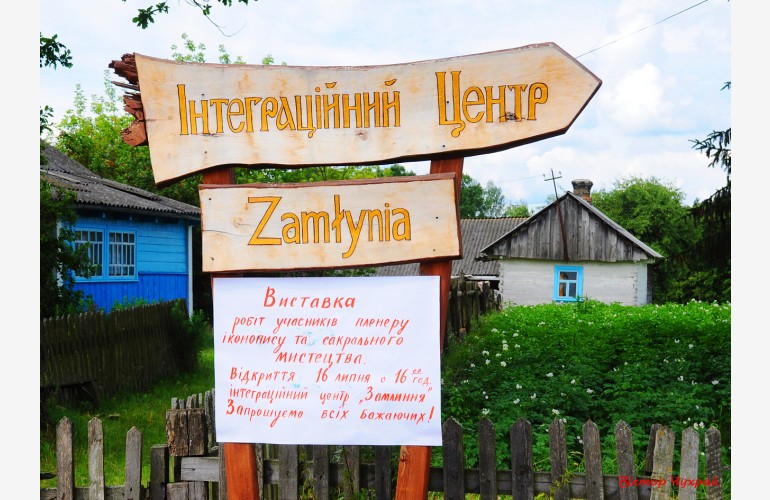 Інтеграційний Центр
Zamłynia
Виставка
робіт учасників пленеру
іконопису та сакрального
мистецтва.
Відкриття 16 липня о 16 00 год.
інтеграційний центр „Замлиння"
Запрошуємо всіх бажаючих!
Віктор Чухрай